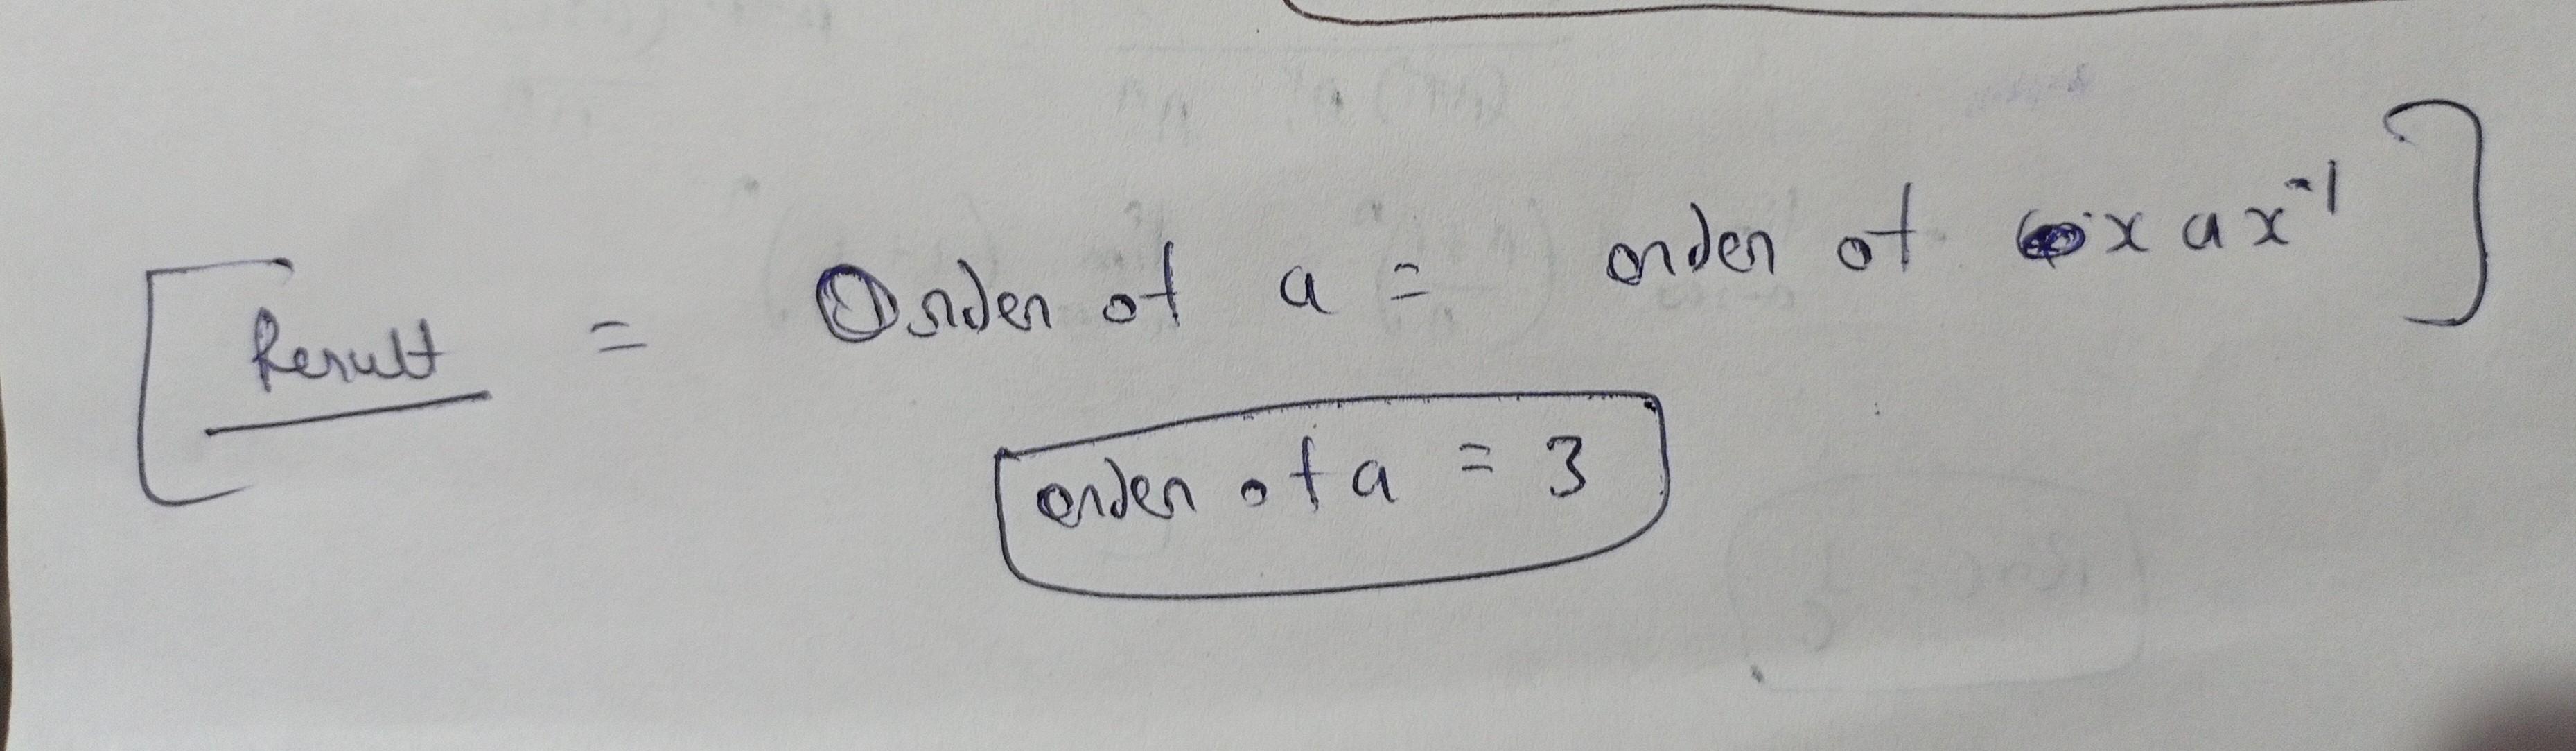 [Result = Order of a = order of x a x⁻¹]
order of a = 3